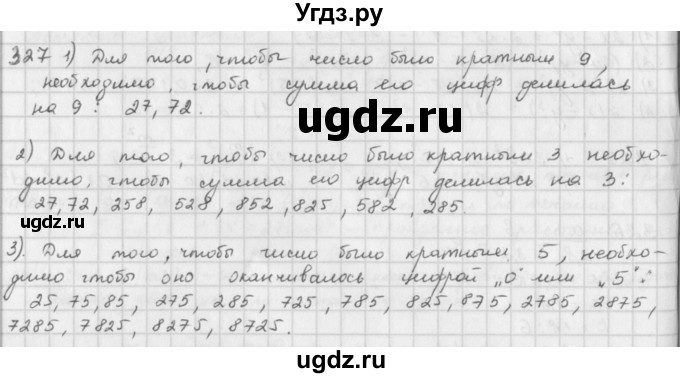 Угдз.ру
327 1) Для того, чтобы число было кратным 9,
необходимо, чтобы сумма его цифр делилась
на 9: 27, 72.
ugdz.ru
2) Для того, чтобы число было кратным 3 необхо-
димо, чтобы сумма его цифр делилась на 3:
27, 72, 258, 528, 852, 825, 582, 285.
ugdz.ru
ugdz.ru
3). Для того, чтобы число было кратным 5, необхо-
димо чтобы оно оканчивалось цифрой „0" или „5":
25, 75, 85, 275, 285, 725, 785, 825, 875, 2785, 2875,
7285, 7825, 8275, 8725.
ugdz.ru